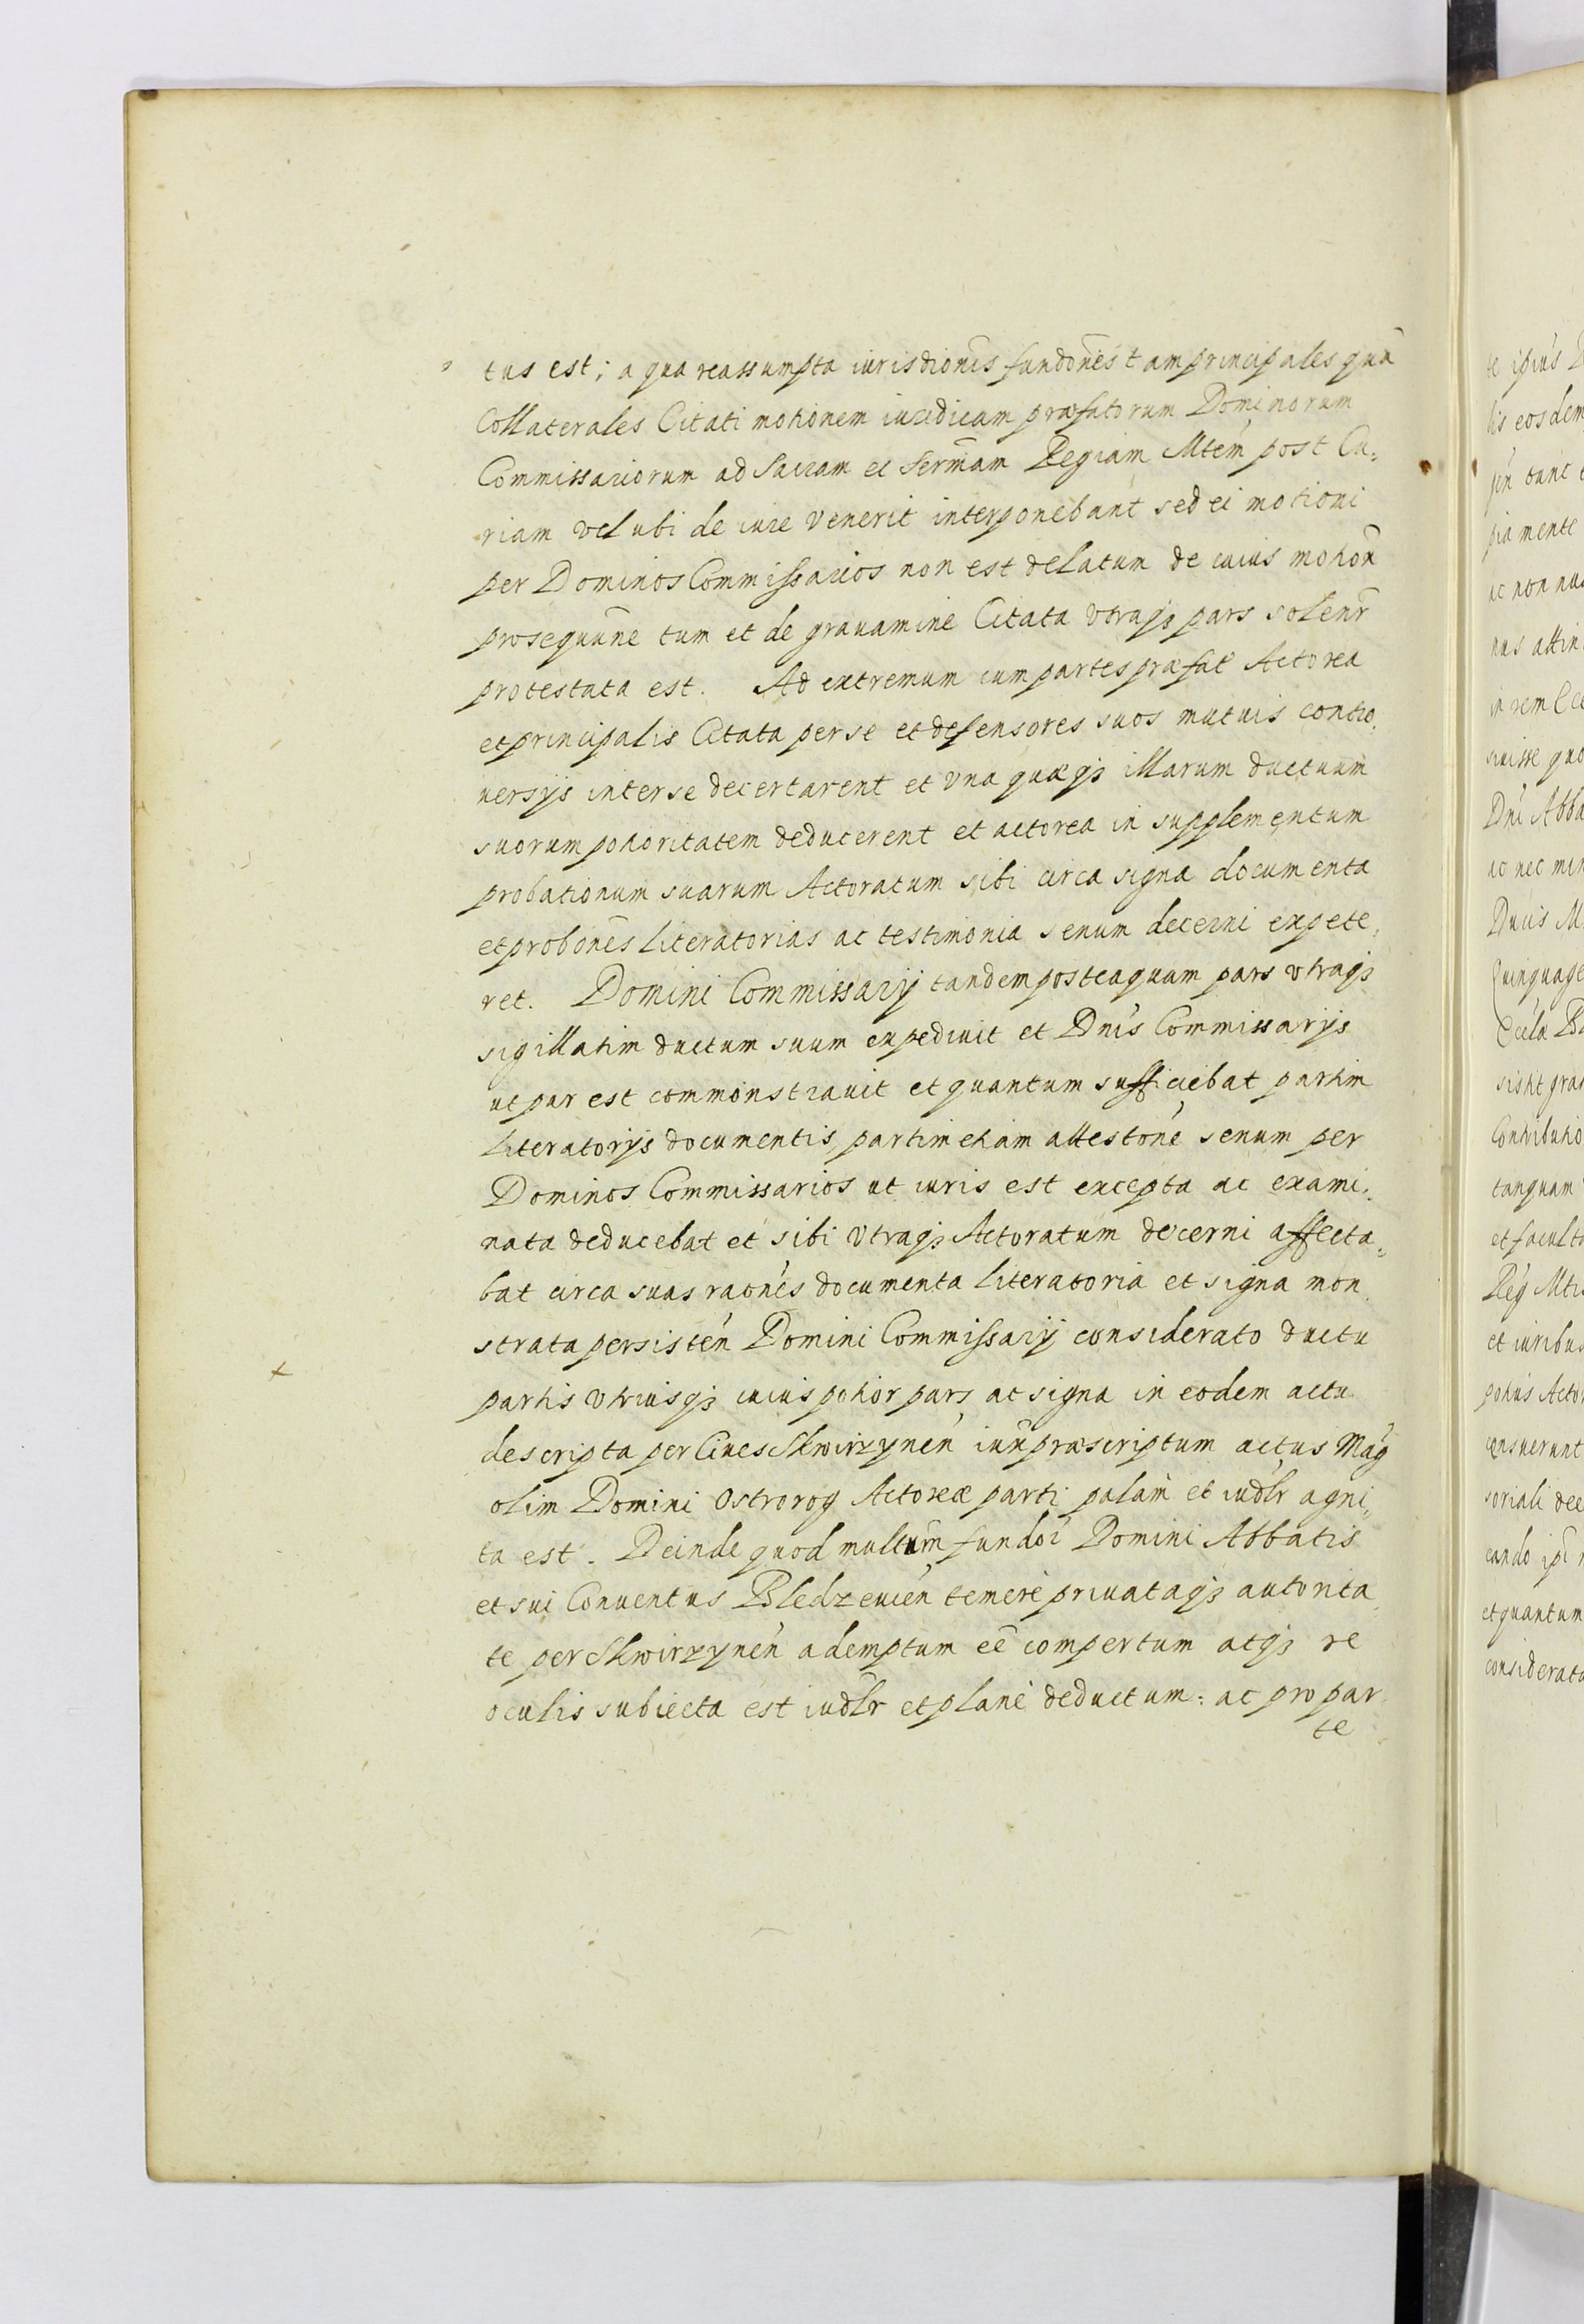 tus est; a qua reassumpta iurisdionis fundones tam principales qua
Collaterales Citati motionem iuridicam præfatorum Dominorum
Commissariorum ad Sacram et Sermam Regiam Mtem post Cu,
riam vel ubi de iure venerit interponebant sed ei motioni
per Dominos Commissarios non est delatum de cuius motion
prosequune tum et de grauamine Citata vtraqz pars solenr
protestata est. Ad extremum cum partes præfat Actorea
et principalis Citata per se et defensores suos mutuis contro,
uersijs inter se decertarent et vna quæqz illarum ductuum
suorum potioritatem deducerent et actorea in supplementum
probationum suarum Actoratum sibi circa signa documenta
et probones literatorias ac testimonia senum decerni expete,
ret. Domini Commissarij tandem posteaquam pars vtraqz
sigillatim ductum suum expediuit et Dnis Commissarijs
ut par est commonstrauit et quantum sufficiebat partim
literatorijs documentis, partim etiam attestone senum per
Dominos Commissarios ut iuris est excepta ac exami,
nata deducebat et sibi vtraqz Actoratum decerni affecta,
bat circa suas raones documenta literatoria et signa mon
strata persisten Domini Commissarij considerato ductu
partis vtriusqz cuius potior pars ac signa in eodem actu
descripta per Ciues Skwirzynen iux præscriptum actus Mag
olim Domini Ostrorog Actoreæ parti palam et iudlr agni,
ta est. Deinde quod multum fundoi Domini Abbatis
et sui Conuentus Bledzeuien temere priuataqz autorita
te per Skwirzynen ademptum eē compertum atqz re
oculis subiecta est iudlr et plane deductum: ac pro par
te